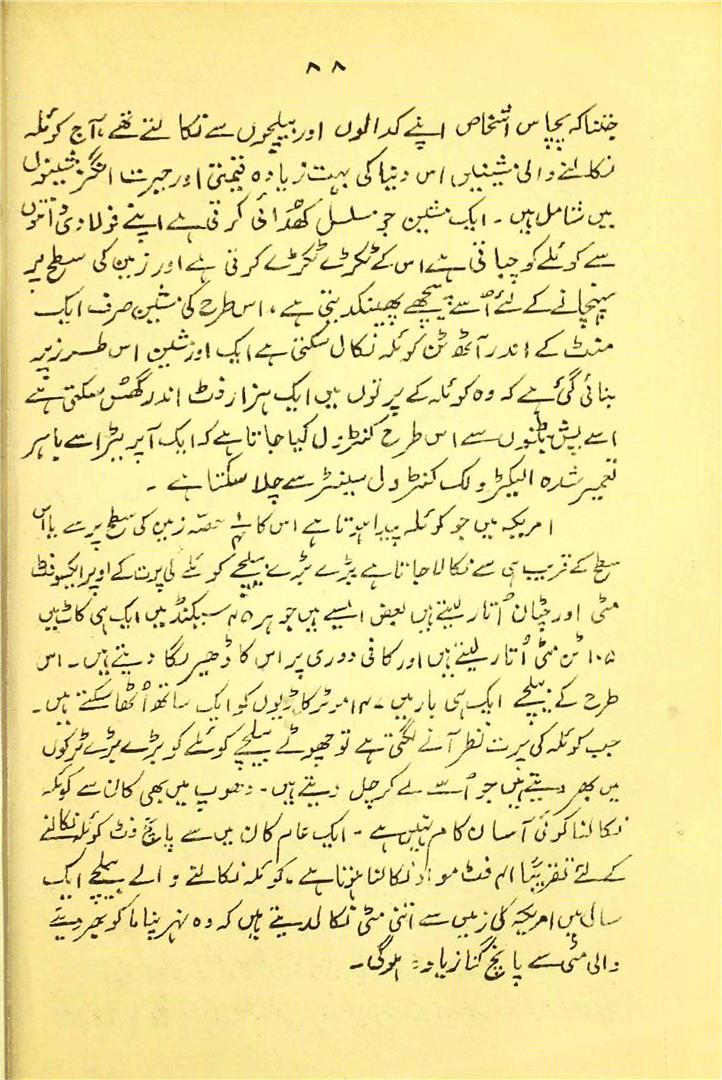 ۸۸
جتنا کہ پچاس اشخاص اپنے کدالوں اور بیلچوں سے نکالتے تھے، آج کوئلہ
نکالنے والی مشینیں اس دنیا کی بہت زیادہ قیمتی اور حیرت انگیز مشینوں
میں شامل ہیں۔ ایک مشین جو مسلسل کھدائی کرتی ہے اپنے فولادی دانتوں
سے کوئلے کو چباتی ہے اس کے ٹکڑے ٹکڑے کرتی ہے اور زمین کی سطح پر
پہنچانے کے لئے اُسے پیچھے پھینکدیتی ہے، اس طرح کی مشین صرف ایک
منٹ کے اندر آٹھ ٹن کوئلہ نکال سکتی ہے ایک اور مشین اس طرز پر
بنائی گئی ہے کہ وہ کوئلہ کے پرتوں میں ایک ہزار فٹ اندر گھس سکتی ہے
اسے پش بٹنوں سے اس طرح کنٹرول کیا جاتا ہے کہ ایک آپریٹر اسے باہر
تعمیر شدہ الیکٹرونک کنٹرول سینٹر سے چلا سکتا ہے ۔
امریکہ میں جو کوئلہ پیدا ہوتا ہے اس کا حصہ زمین کی سطح پر سے یا اس
سطح کے قریب ہی سے نکالا جاتا ہے بڑے بڑے بیلچے کوئلے کی پرت کے اوپر ایکسو فٹ
مٹی اور چٹان اُتار لیتے ہیں بعض ایسے ہیں جو ہر ۴۵ سیکنڈ میں ایک ہی کاٹ میں
۱۰۵ ٹن مٹی اُتار لیتے ہیں اور کافی دوری پر اس کا ڈھیر لگا دیتے ہیں۔ اس
طرح کے بیلچے ایک ہی بار میں ۱۴۷ موٹر کاڑیوں کو ایک ساتھ اُٹھا سکتے ہیں۔
جب کوئلہ کی پرت نظر آنے لگتی ہے تو چھوٹے بیلچے کوئلے کو بڑے بڑے ٹرکوں
میں بھر دیتے ہیں جو اُسے لے کر چل دیتے ہیں۔ دھوپ میں بھی کان سے کوئلہ
نکالنا کوئی آسان کام نہیں ہے ۔ ایک عام کان میں سے پانچ فٹ کوئلہ نکالنے
کے لئے تقریباً ۴۱ فٹ مواد نکالنا ہوتا ہے ۔ کوئلہ نکالنے والے بیلچے ایک
سال میں امریکہ کی زمین سے اتنی مٹی نکالدیتے ہیں کہ وہ نہر پناما کو بھر دینے
والی مٹی سے پانچ گنا زیادہ ہوگی ۔